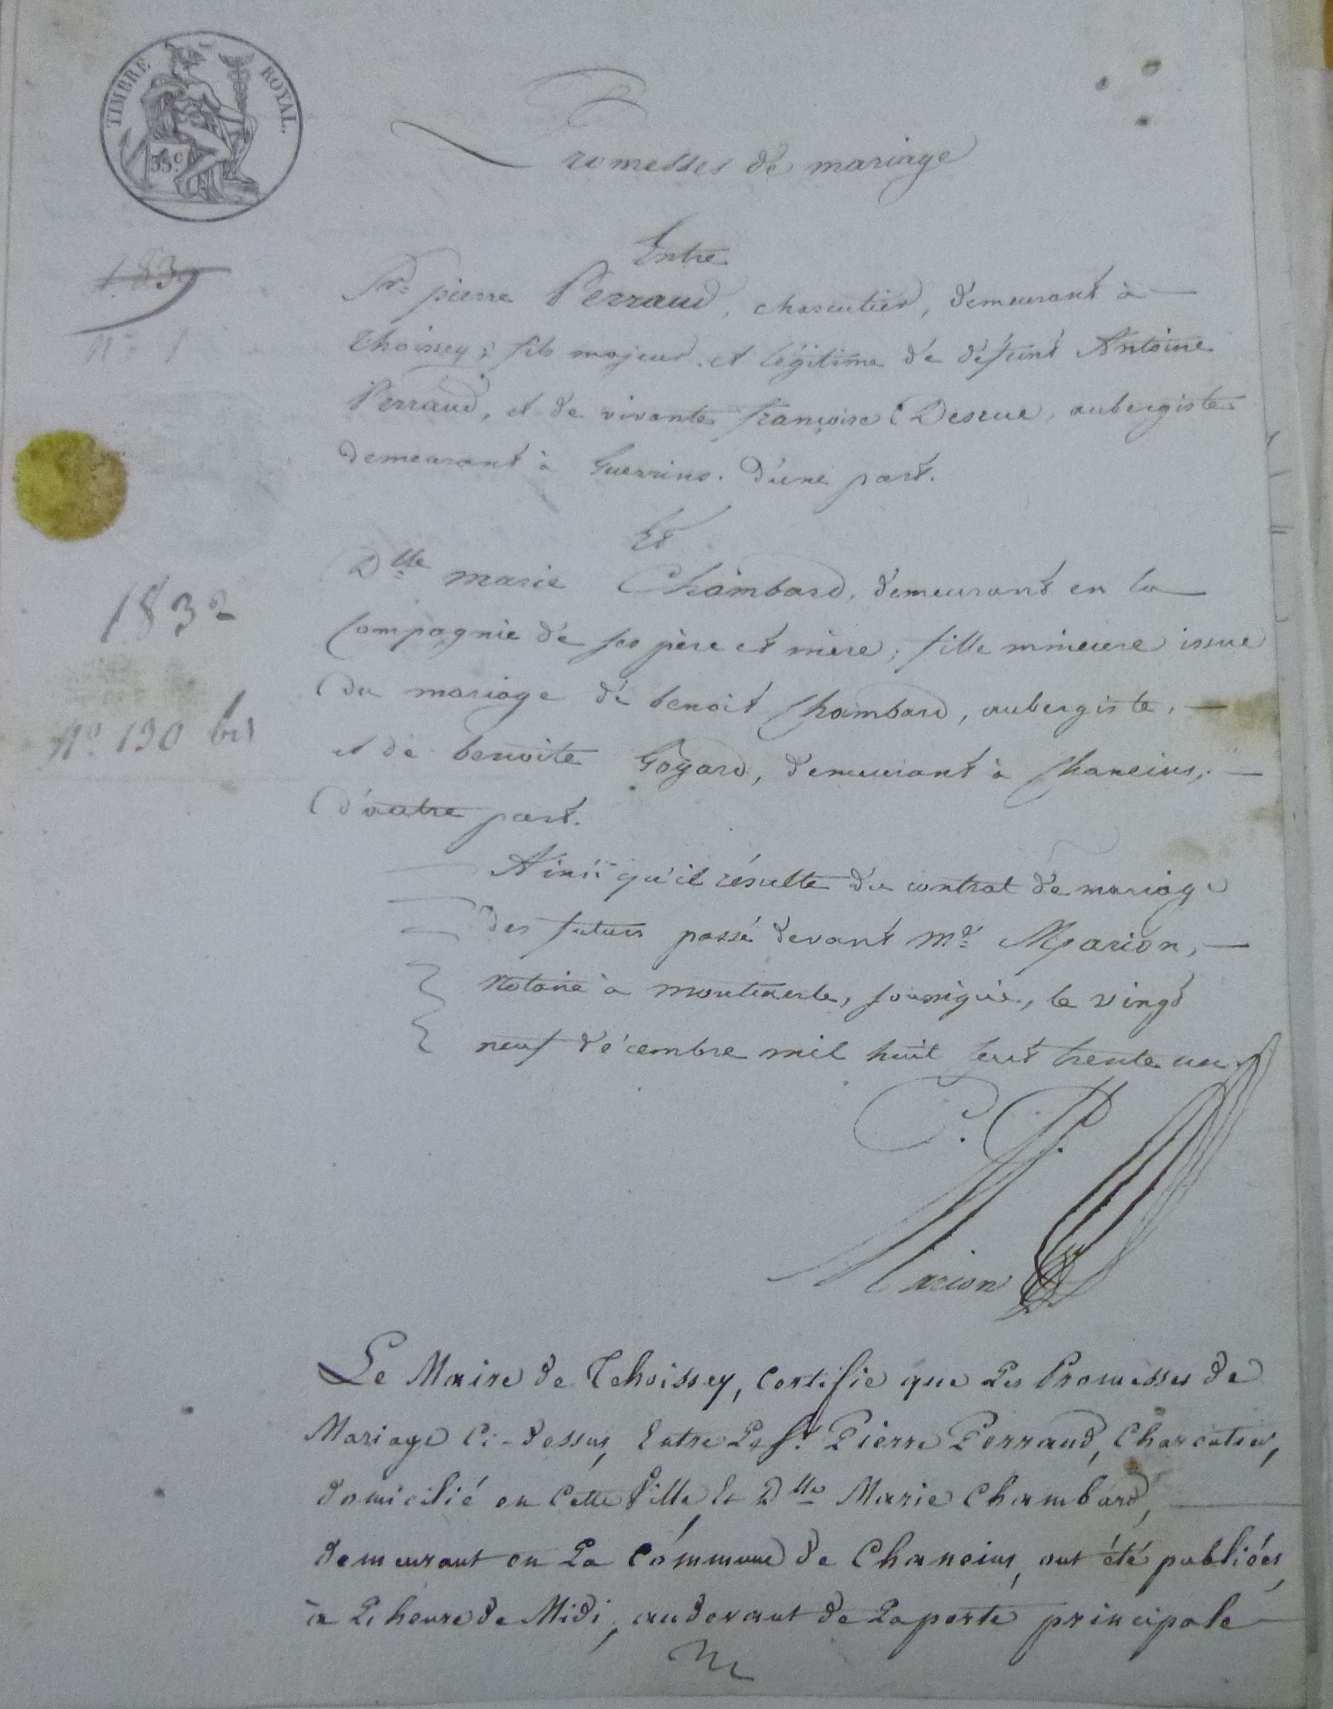 TIMBRE ROYAL.
35c
Promesses de mariage
1839
N° 1
Entre
Sr. pierre Perraud, charcutier, demeurant à
thoissey; fils majeur et légitime de défunt Antoine
Perraud, et de vivante françoise Descue, aubergiste
demeurant à Guerrins. D'une part.
Et
Dlle marie Chambard, demeurant en la
Compagnie de ses père et mère; fille mineure issue
Du mariage de benoit Chambard, aubergiste,
et de benoite Gogard, demeurant à Chaneins,
D'autre part.
1832
N° 190 bis
Ainsi qu'il résulte du contrat de mariage
des futurs passé devant Me Marion,
Notaire à montmerle, soussigné, le vingt
neuf décembre mil huit cent trente un.
C. P.
Marion
Le Maire de Thoissey, Certifie que Les Promesses de
Mariage Ci-dessus, Entre Le Sr. Pierre Perraud, Charcutier,
domicilié en Cette Ville, Et Dlle Marie Chambard,
demeurant en La Commune de Chaneins, ont été publiées
à L'heure de Midi, au devant de La porte principale